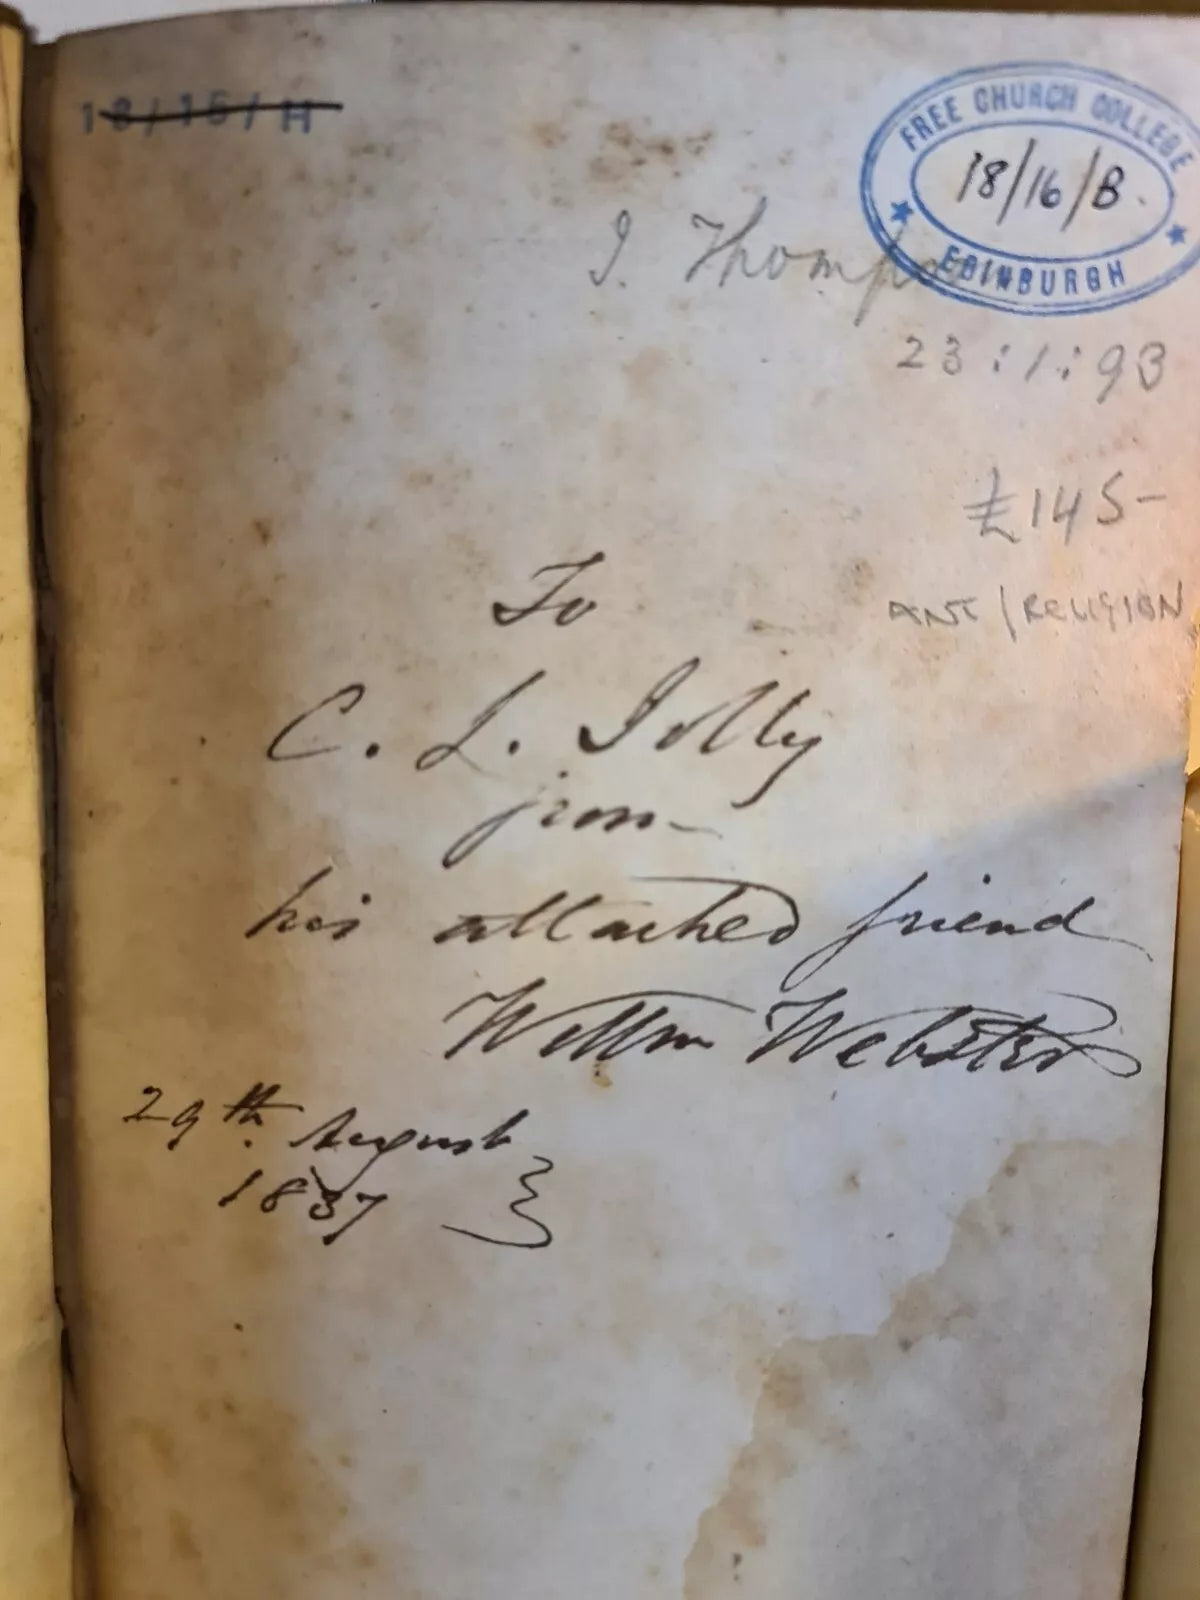 18/16/H
FREE CHURCH COLLEGE
18/16/B.
EDINBURGH
I. Thomps
23:1:93
£145-
ANT/RELIGION
To
C. L. Jolly
from
his attached friend
Willm Webster
29th. August
1837